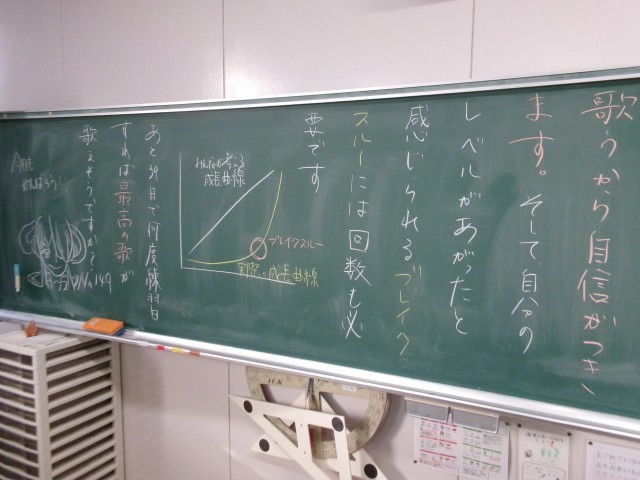 歌うから自信がつき、
ます。そして、自分の
レベルがあがったと
感じられるブレイク
スルーには回数も必
要です
みんなが考える
成長曲線
ブレイクスルー
実際の成長曲線
あと39日で何度練習
すれば最高の歌が
歌えそうですか?
No.149